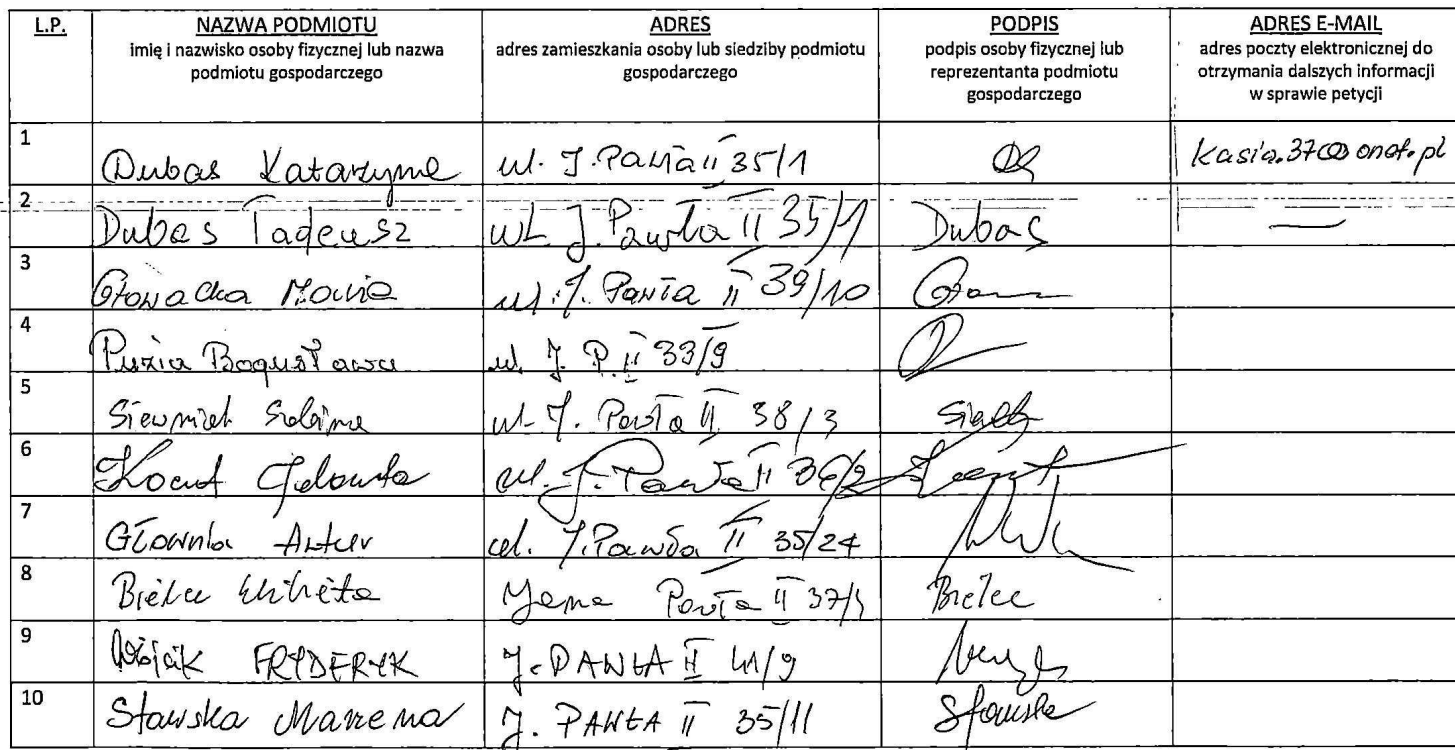 L.P. NAZWA PODMIOTU ADRES PODPIS ADRES E-MAIL
imię i nazwisko osoby fizycznej lub nazwa podmiotu gospodarczego
adres zamieszkania osoby lub siedziby podmiotu gospodarczego
podpis osoby fizycznej lub reprezentanta podmiotu gospodarczego
adres poczty elektronicznej do otrzymania dalszych informacji w sprawie petycji
1 Dubas Katarzyna ul. J. Pawła II 35/1
2 Dubas Tadeusz ul. J. Pawła II 35/1 Dubas —
3 Głowacka Maria ul. J. Pawła II 39/10
4 Puzia Bogusława ul. J. P. II 33/9
5 ul. J. Pawła II 38/3
6 ul. J. Pawła II 36/2
7 Głownia Artur ul. J. Pawła II 35/24
8 Bielec Elżbieta Jana Pawła II Bielec
9 Wójcik FRYDERYK J. PAWŁA II 41/9
10 Stawska Marzena J. PAWŁA II 35/11 Stawska